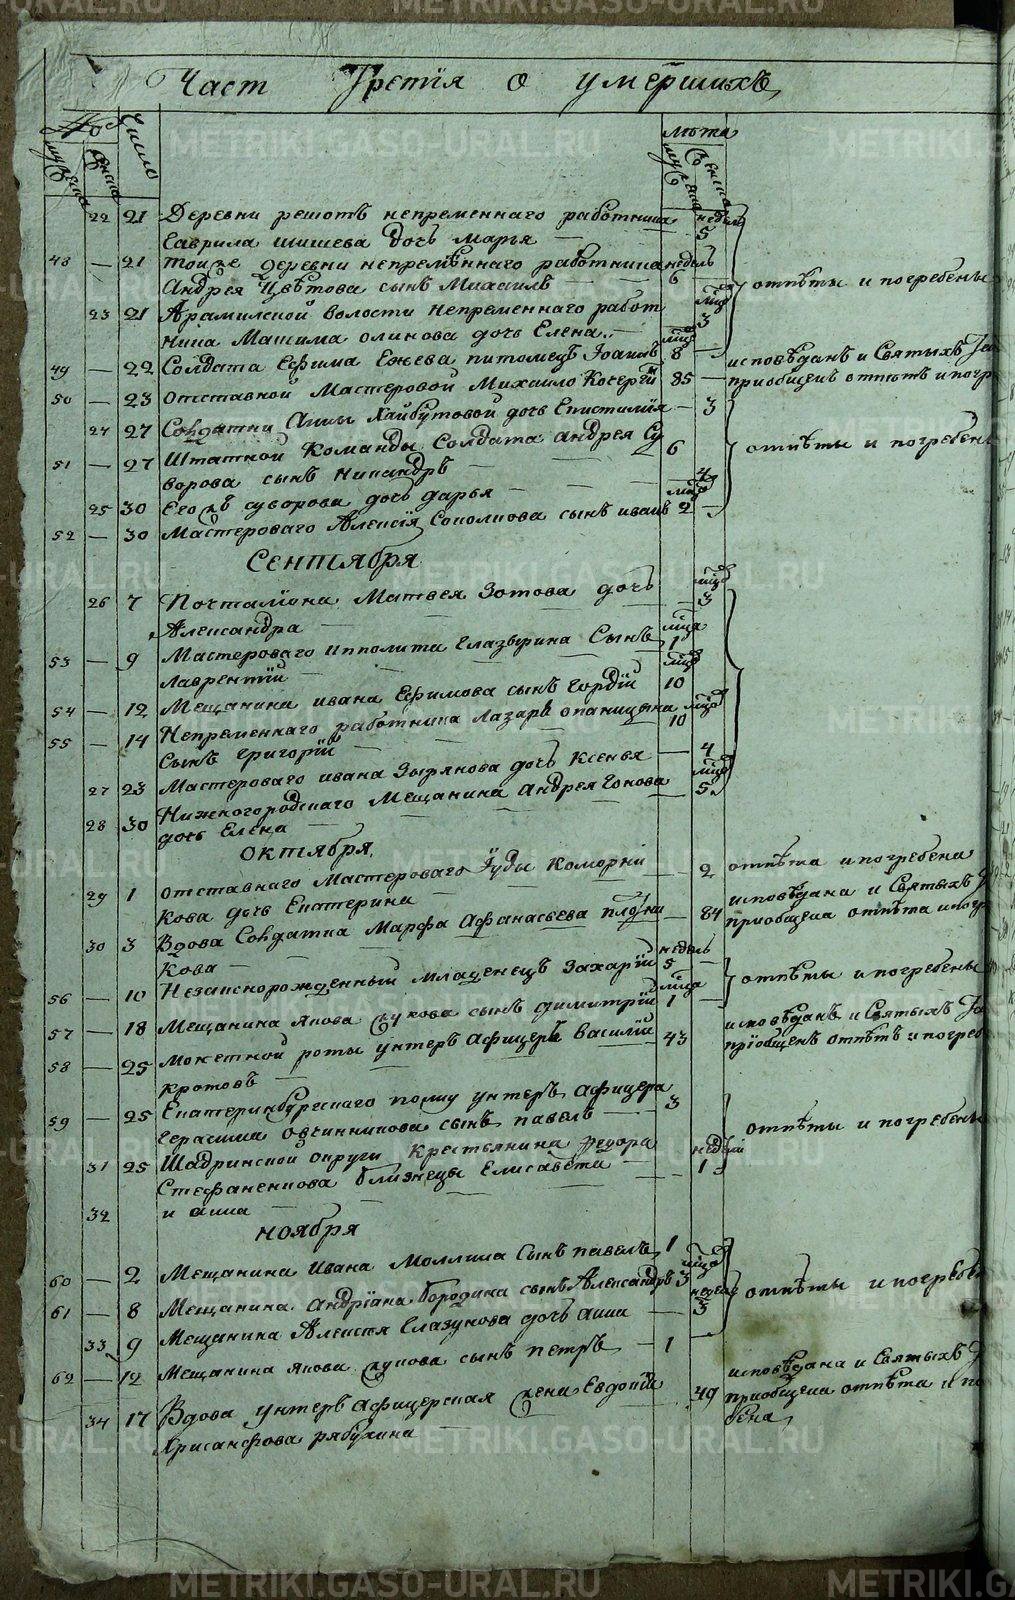 Част Третія о умершихъ
№ Число лѣта
мужеска женска мужеска женска
22 21 Деревни решотъ непременнаго работника недель
Гаврила шишева дочь Марья — 5
48 — 21 тоиже деревни непремѣннаго работника недель
Андрея Цвѣтова сынъ Михаилъ — 6
отпѣты и погребены
23 21 Арамилской волости непременнаго работ мцъ
ника Машима олинова дочь Елена — 3
49 — 22 Солдата Ефима Ежева питомецъ Іоанъ 8 —
50 — 23 отставной Мастеровой Михаило Кочергин 85 —
исповѣданъ и Святыхъ
приобщенъ отпѣтъ и погр
24 27 Солдатки Анны Хайбутовой дочь Епистимія — 3
51 — 27 Штатной Команды Солдата андрея Су 6
ворова сынъ Никандръ —
отпѣты и погребены
25 30 Его жъ суворова дочь дарья — 4
52 — 30 Мастероваго Алексія Соколкова сынъ иванъ 2 —
Сентября
26 7 Почталіона Матвея Зотова дочь мцъ
Александра — 3
53 — 9 Мастероваго ипполита Глазырина Сынъ мца
Лаврентій — 1
54 — 12 Мещанина ивана Ефимова сынъ Гордій 10
55 — 14 Непременнаго работника лазаря опаницына мцъ
Сынъ григорій — 10
27 23 Мастероваго ивана Зырянова дочь Ксенья — 4
28 30 Нижногородскаго Мещанина Андрея Гонова мцъ
дочь Елена — 5
октября
29 1 отставнаго Мастероваго Іуды Коморни — 2 отпѣта и погребена
Кова дочь Екатерина —
30 3 Вдова Солдатка Марфа Афанасьева плотни — 84
Кова —
исповѣдана и Святыхъ
приобщена отпѣта и погр
56 — 10 Незаконорожденный младенецъ Захарій недель 5
57 — 18 Мещанина якова жукова сынъ димитрій мца 1 —
отпѣты и погребены
58 — 25 монетной роты унтеръ Афицеръ василій 43
кротовъ —
исповѣданъ и Святыхъ
пріобщенъ отпѣтъ и погреб
59 — 25 Екатеринбургскаго полку унтеръ Афицера 3
герасима овчинникова сынъ павелъ —
31 25 Шадринской округи Крестьянина федора недели
Стефаненкова близнецы Елисавета — 1
32 и анна —
отпѣты и погребены
ноября
60 — 2 Мещанина Ивана Моллина Сынъ павелъ 1
61 — 8 Мещанина Андріана бородина сынъ Александръ 3 мцъ
33 9 Мещанина Алексея Глазунова дочь анна недели 3
62 — 12 Мещанина якова жукова сынъ петръ — 1
отпѣты и погребены
34 17 Вдова унтеръ афицерская жена Евдокія 49
Хрисанфова рябухина
исповѣдана и Святыхъ
приобщена отпѣта и по
бена
METRIKI.GASO-URAL.RU